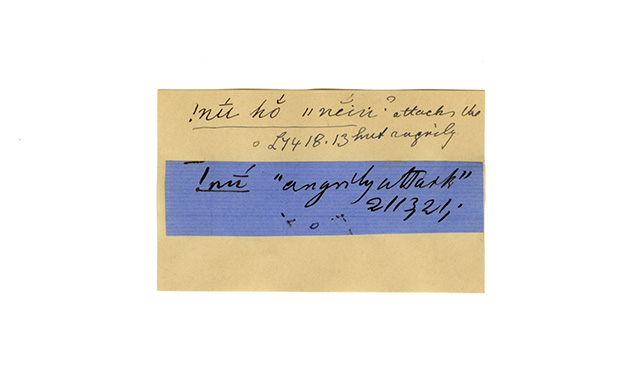 !nū hő "něiṅ? attacks the
LY418.13 hut angrily
!nū́ "angrily attack"
211321;